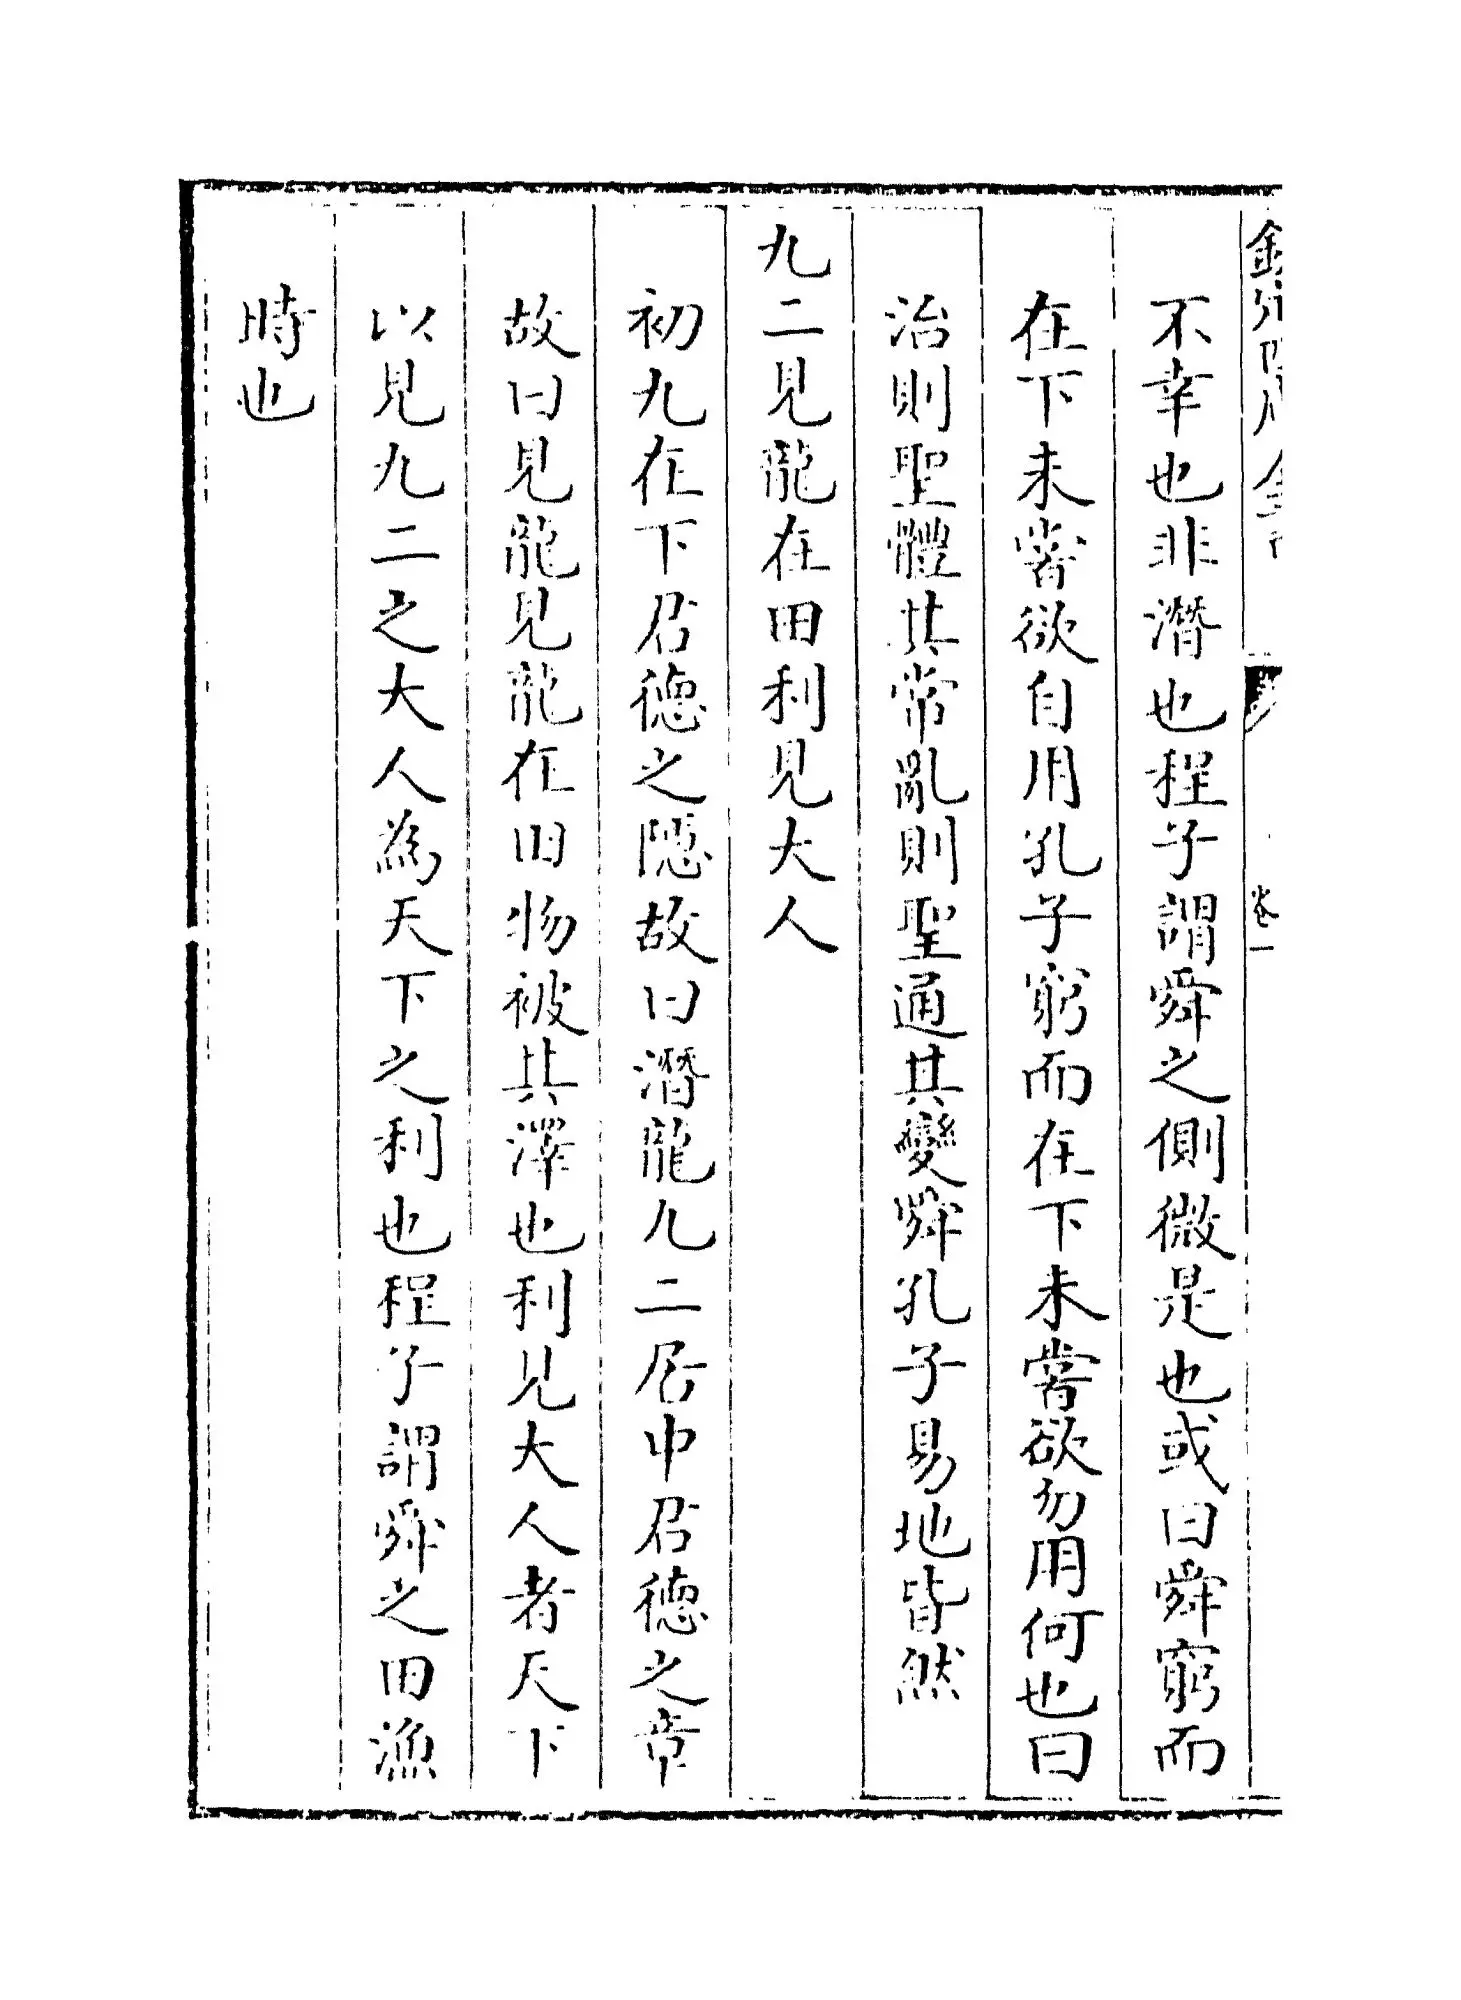 不幸也非潛也程子謂舜之側微是也或曰舜窮而
在下未嘗欲自用孔子窮而在下未嘗欲勿用何也曰
治則聖體其常亂則聖通其變舜孔子易地皆然
九二見龍在田利見大人
初九在下君德之隱故曰潛龍九二居中君德之章
故曰見龍見龍在田物被其澤也利見大人者天下
以見九二之大人為天下之利也程子謂舜之田漁
時也
卷一